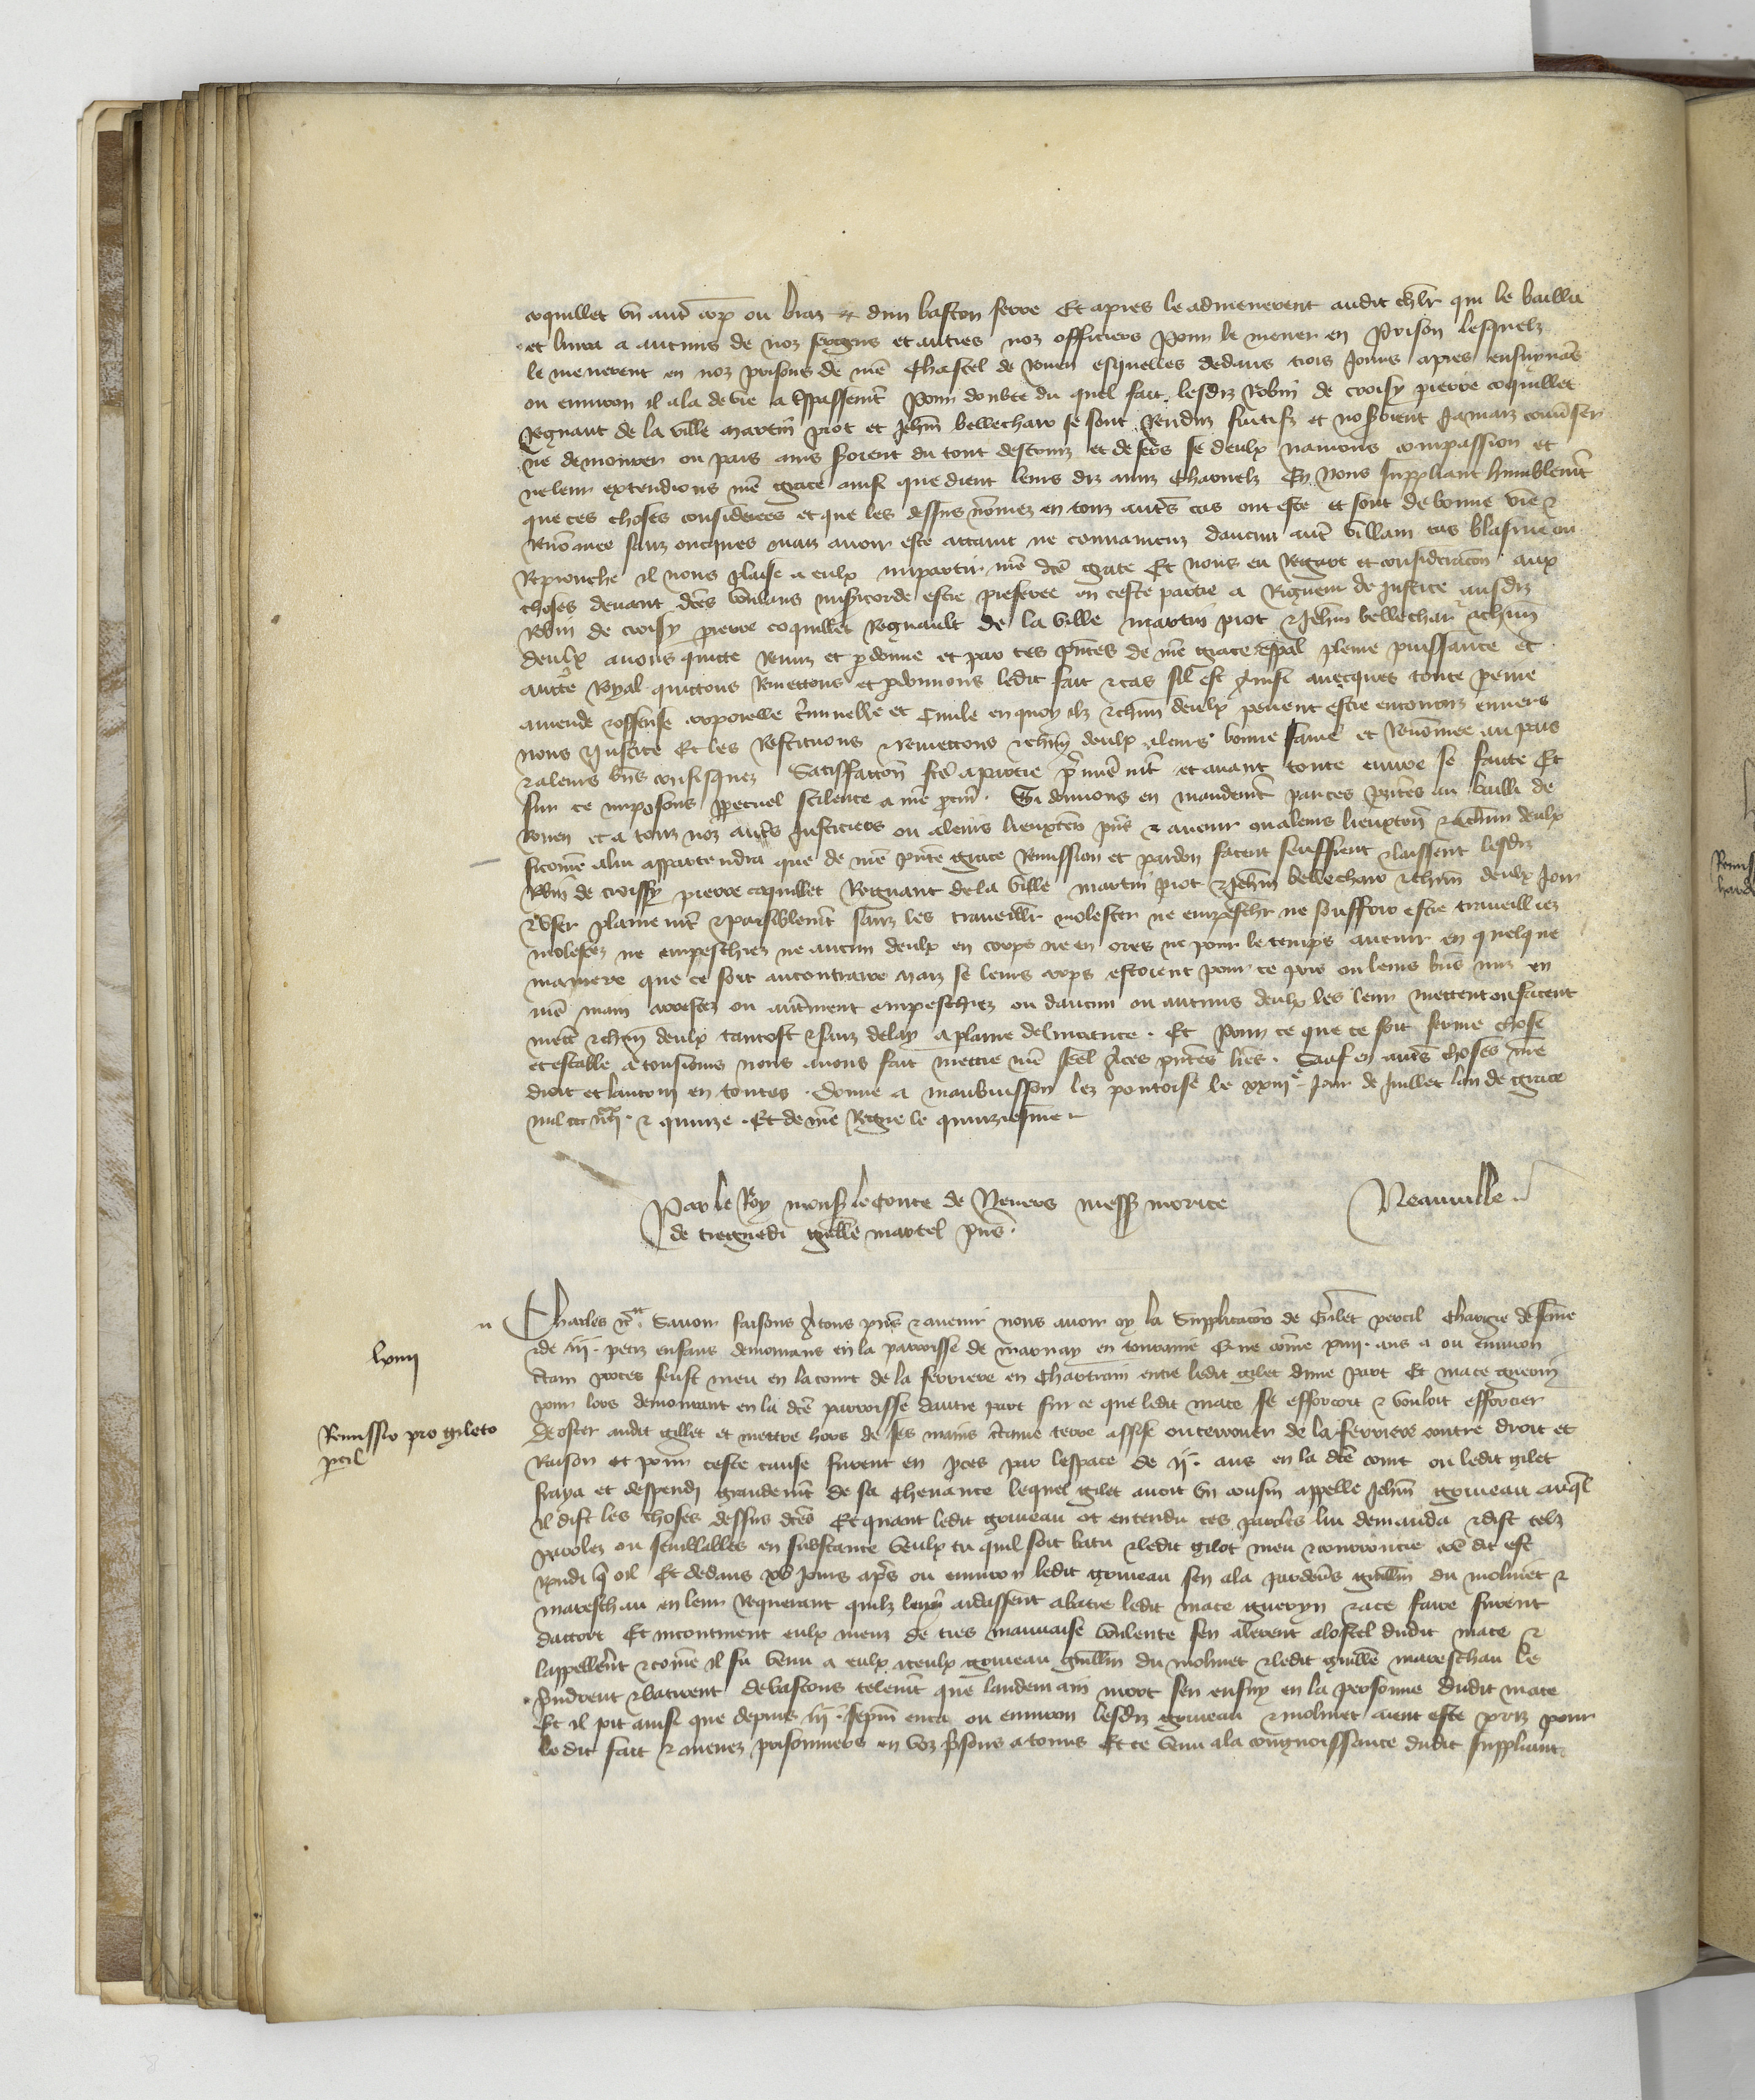 coquillet un autre cop ou braz dun baston ferre Et apres le admenerent audit chlr qui le bailla
et livra a aucuns de noz sergens et autres noz officiers Pour le mener en Prison lesquelz
le menerent en noz prisons de nre Chastel de Rouen esquelles dedans trois jours apres ensuivans
ou environ il ala de vie a trespassement Pour doubte du quel fait lesdiz Robin de croisy pierre coquillet
Regnaut de la ville martin piot et Jehan bellechar se sont Renduz fuitifs et noseroient Jamaiz converser
ne demourer ou pais ains seroient du tout destruiz et desers se deulx navions compassion et
ne leur extendions nre grace ainsi que dient leurs diz amis Charnelz En nous suppliant humblement
que ces choses considerees et que les dessus nommez en touz autres cas ont este et sont de bonne vie &
Renommee sanz oncques maiz avoir este attaint ne convaincuz daucun autre villain cas blasme ou
Reprouche il nous plaise a eulx impartir nre dce grace Et nous eu Regart et consideracion aux
choses devant dces voulans misericorde estre preferee en ceste partie a Rigueur de Justice ausdiz
Robin de croisy pierre coquillet Regnault de la ville martin piot & Jehan bellechar & a chun
deulx avons quitte Remis et pdonne et par ces pntes de nre grace espal pleine puissance et
aucte Royal quittons Remettons et pdonnons ledit fait & cas sil est Ainsi avecques toute peine
amende & offense corporelle criminelle et Civile en quoy ilz & chun deulx pevent estre encouruz envers
nous & Justice Et les Restituons & Remettons & chun deulx a leurs bonne fame et Renommee au pais
& a leurs biens confisquez Satisfaccion fce a partie premierement et avant toute euvre se faute Et
sur ce imposons ppetuel silence a nre pcur. Si donnons en mandement par ces pntes au bailli de
Rouen et a touz noz autres Justiciers ou a leurs lieuxten pns & avenir ou a leurs lieuxten & a chun deulx
sicomme a lui appartendra que de nre pnte grace Remission et pardon facent seuffrent & laissent lesdiz
Robin de croissy pierre coquillet Regnaut de la ville martin piot & Jehan bellechar & chun deulx Joir
& user plainement & paisiblement sanz les traveillr molester ne empeschr ne souffrir estre traveilliez
molestez ne empeschiez ne aucun deulx en corps ne en ores ne pour le temps avenir en quelque
maniere que ce soit au contraire maiz se leurs corps estoient pour ce pris ou leurs biens mis en
nre main arrestez ou autrement empeschiez ou daucun ou aucuns deulx les leur mettent ou facent
mectre & chun deulx tantost & sanz delay a plaine delivrance. Et Pour ce que ce soit ferme chose
et estable a tousiours nous avons fait mettre nre seel A ces pntes lres. Sauf en autres choses nre
droit et lautrui en toutes. donne a maubuisson lez pontoise le xxiiie Jour de Juillet lan de grace
mil ccc iiiixx & quinze. Et de nre Regne le quinziesme
Par le Roy mons le Conte de Nevers messe morice
de treguedi guille martel pns.
Neauville
Charles &c. Savoir faisons A tous pns & avenir nous avoir oy la Supplicacion de Gilet percil Chargie de femme
& de iii. petiz enfans demourans en la parroisse de marnay en touraine Que comme xiiii. ans a ou environ
certain proces feust meu en la court de la ferriere en Chartrain entre ledit gilet dune part Et mace guerin
pour lors demourant en la dce parroisse dautre part sur ce que ledit mace se efforcoit & vouloit efforcier
De oster audit gillet et mettre hors de ses mains certaine terre assise ou terrouer de la ferriere contre droit et
Raison et pour ceste cause furent en proces par lespace de ii. ans en la dce court ou ledit gilet
fraya et despendi grandement de sa Chevance lequel gilet avoit un cousin appelle Jehan gouveau auql
il dist les choses dessus dces Et quant ledit gouveau ot entendu ces paroles lui demanda & dist telz
paroles ou semblables en substance veulx tu quil soit batu & ledit gilet meu & courroucie come dit est
Rendi q oil Et dedans xv Jours apres ou environ ledit gouveau sen ala pardevers guille du molinet &
mareschau en leur Requerant quilz leur aidassent a batre ledit mace gueryn & a ce faire furent
daccort Et incontinent eulx meuz de tres mauvaise voulente sen alerent a lostel dudit mace &
lappellerent & comme il fu venu a eulx iceulx gouveau guille du molinet & ledit guille mareschau le
prindrent & batirent de bastons telement que landemain mort sen ensuy en la personne dudit mace
Et il soit ainsi que depuis iii. sepm enca ou environ lesdiz gouveau & molinet aient este priz pour
le dit fait & menez prisonniers en voz prisons a tours Et ce venu a la congnoissance dudit suppliant
lxiiii
Remissio pro gileto
percil